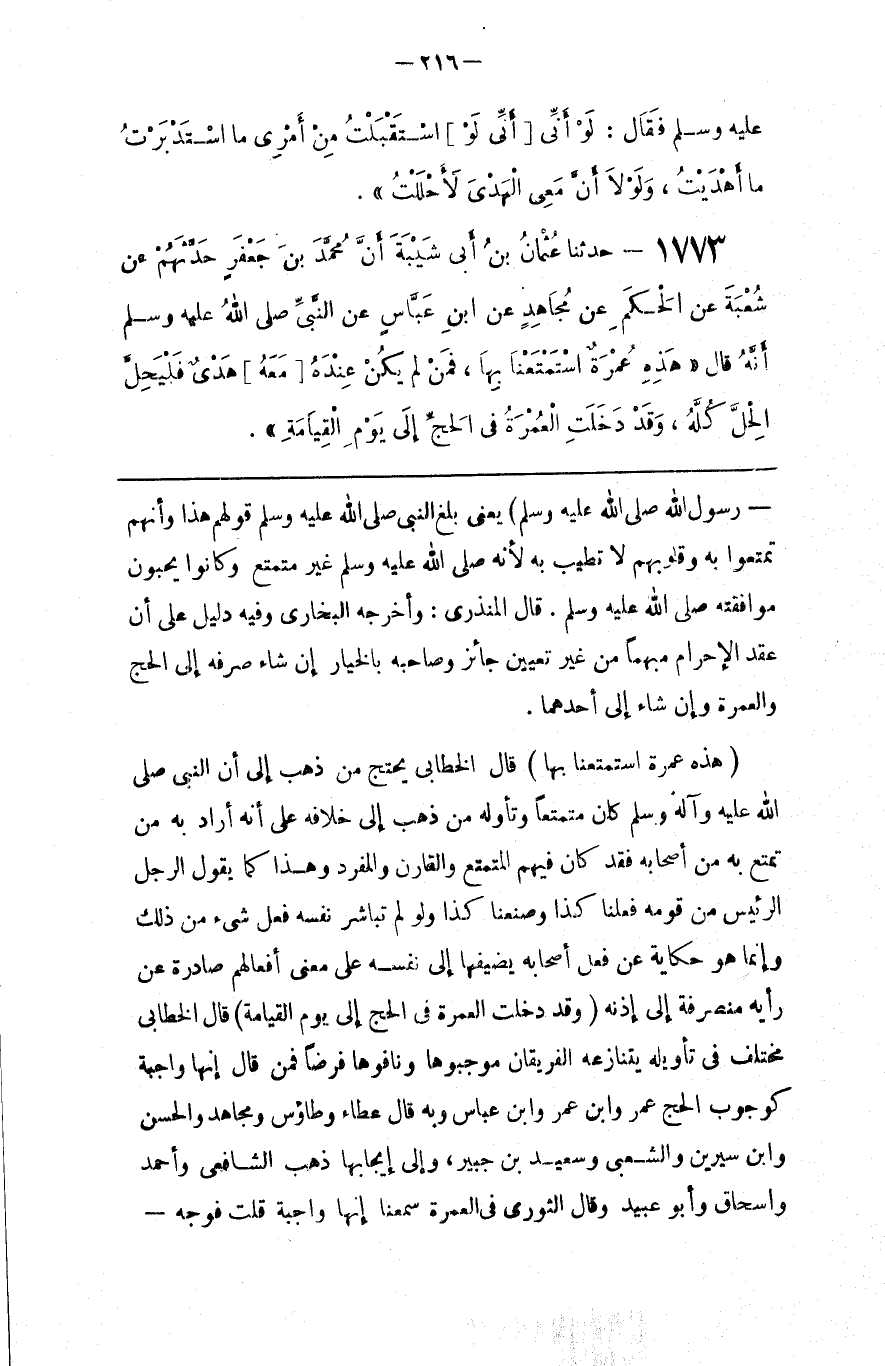 — ٢١٦ —
عليه وسـلم فَقَال : لَوْ أَنِّى [ أَنِّى لَوْ ] اسْـتَقْبَلْتُ مِنْ أَمْرِى ما اسْـتَدْبَرْتُ
ما أَهْدَيْتُ ، وَلَوْلاَ أَنَّ مَعِى الْهَدْىَ لَأَحْلَلْتُ » .
١٧٧٣ — حدثنا عُثْمَانُ بنُ أَبى شَيْبَةَ أَنَّ مُحمَّدَ بنَ جَعْفَرٍ حَدَّثَهُمْ عن
شُعْبَةَ عن الْحَـكَمِ عن مُجَاهِدٍ عن ابنِ عَبَّاسٍ عن النَّبىِّ صلى اللهُ عليه وسـلم
أَنَّهُ قال « هَذِهِ عُمْرَةٌ اسْتَمْتَعْنَا بِهَا ، فَمَنْ لم يَكُنْ عِنْدَهُ [ مَعَهُ ] هَدْىٌ فَلْيَحِلَّ
الْحِلَّ كُلَّهُ ، وَقَدْ دَخَلَتِ الْعُمْرَةُ فى الْحَجِّ إِلَى يَوْمِ الْقِيَامَةِ » .
— رسول الله صلى الله عليه وسلم) يعنى بلغ النبى صلى الله عليه وسلم قولهم هذا وأنهم
تمتعوا به وقلوبهم لا تطيب به لأنه صلى الله عليه وسلم غير متمتع وكانوا يحبون
موافقته صلى الله عليه وسلم . قال المنذرى : وأخرجه البخارى وفيه دليل على أن
عقد الإحرام مبهماً من غير تعيين جائز وصاحبه بالخيار إن شاء صرفه إلى الحج
والعمرة وإن شاء إلى أحدهما .
( هذه عمرة استمتعنا بها ) قال الخطابى يحتج من ذهب إلى أن النبى صلى
الله عليه وآله وسلم كان متمتعاً وتأوله من ذهب إلى خلافه على أنه أراد به من
تمتع به من أصحابه فقد كان فيهم المتمتع والقارن والمفرد وهـذا كما يقول الرجل
الرئيس من قومه فعلنا كذا وصنعنا كذا ولو لم تباشر نفسه فعل شىء من ذلك
وإنما هو حكاية عن فعل أصحابه يضيفها إلى نفسـه على معنى أفعالهم صادرة عن
رأيه منصرفة إلى إذنه ( وقد دخلت العمرة فى الحج إلى يوم القيامة) قال الخطابى
مختلف فى تأويله يتنازعه الفريقان موجبوها ونافوها فرضاً فمن قال إنها واجبة
كوجوب الحج عمر وابن عمر وابن عباس وبه قال عطاء وطاؤس ومجاهد والحسن
وابن سيرين والشـعبى وسعيـد بن جبير، وإلى إيجابها ذهب الشـافعى وأحمد
واسحاق وأبو عبيد وقال الثورى فى العمرة سمعنا إنها واجبة قلت فوجه —